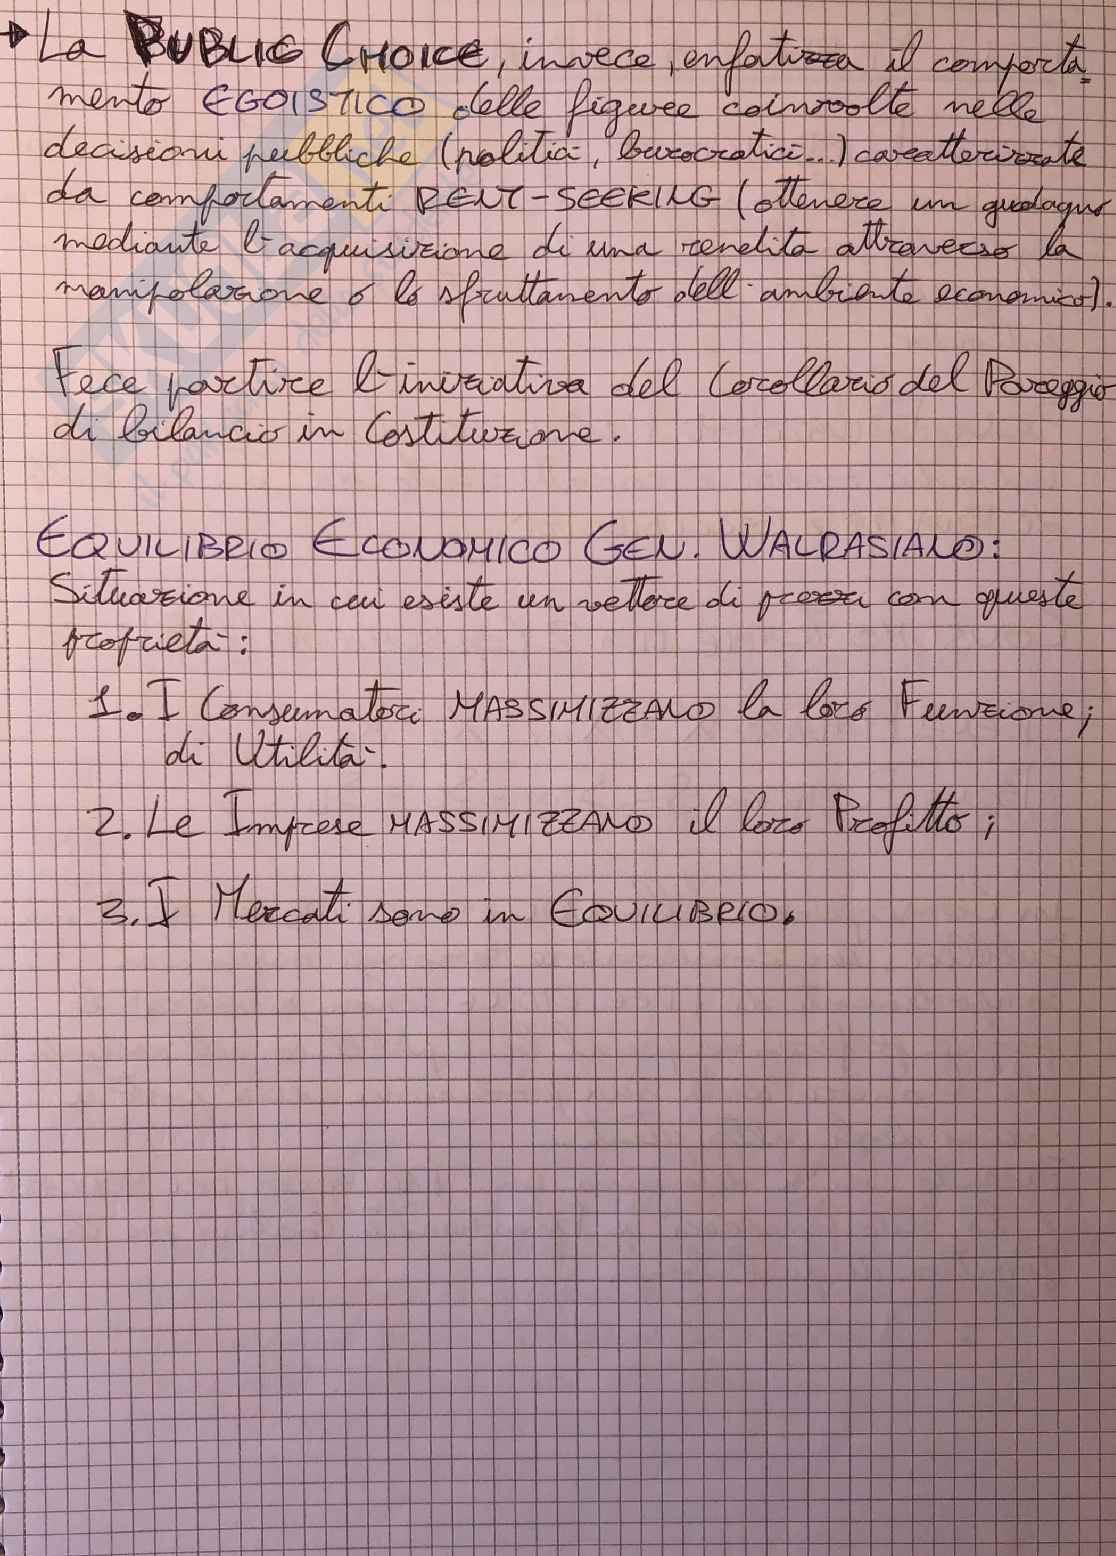 → La PUBLIC CHOICE, invece, enfatizza il comporta-
mento EGOISTICO delle figure coinvolte nelle
decisioni pubbliche (politici, burocratici...) caratterizzate
da comportamenti RENT-SEEKING (ottenere un guadagno
mediante l'acquisizione di una rendita attraverso la
manipolazione o lo sfruttamento dell'ambiente economico).
Fece partire l'iniziativa del Corollario del Pareggio
di bilancio in Costituzione.
EQUILIBRIO ECONOMICO GEN. WALRASIANO:
Situazione in cui esiste un vettore di prezzi con queste
proprietà:
1. I Consumatori MASSIMIZZANO la loro Funzione;
di Utilità.
2. Le Imprese MASSIMIZZANO il loro Profitto;
3. I Mercati sono in EQUILIBRIO.